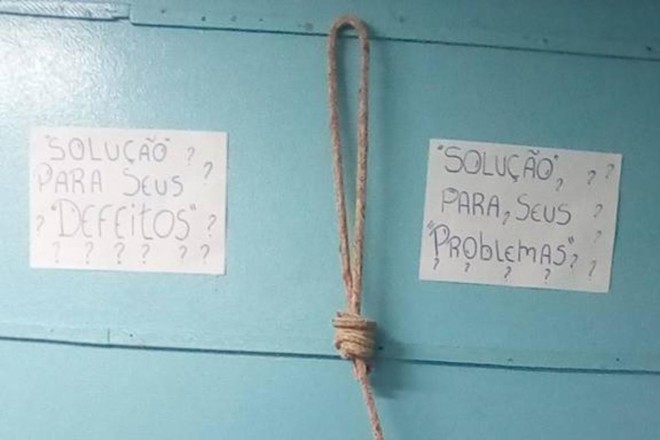 "SOLUÇÃO" ?
PARA SEUS ?
? "DEFEITOS" ?
? ? ? ? ? ?
"SOLUÇÃO", ? ?
PARA, SEUS ?
"PROBLEMAS" ? ?
? ? ? ? ?